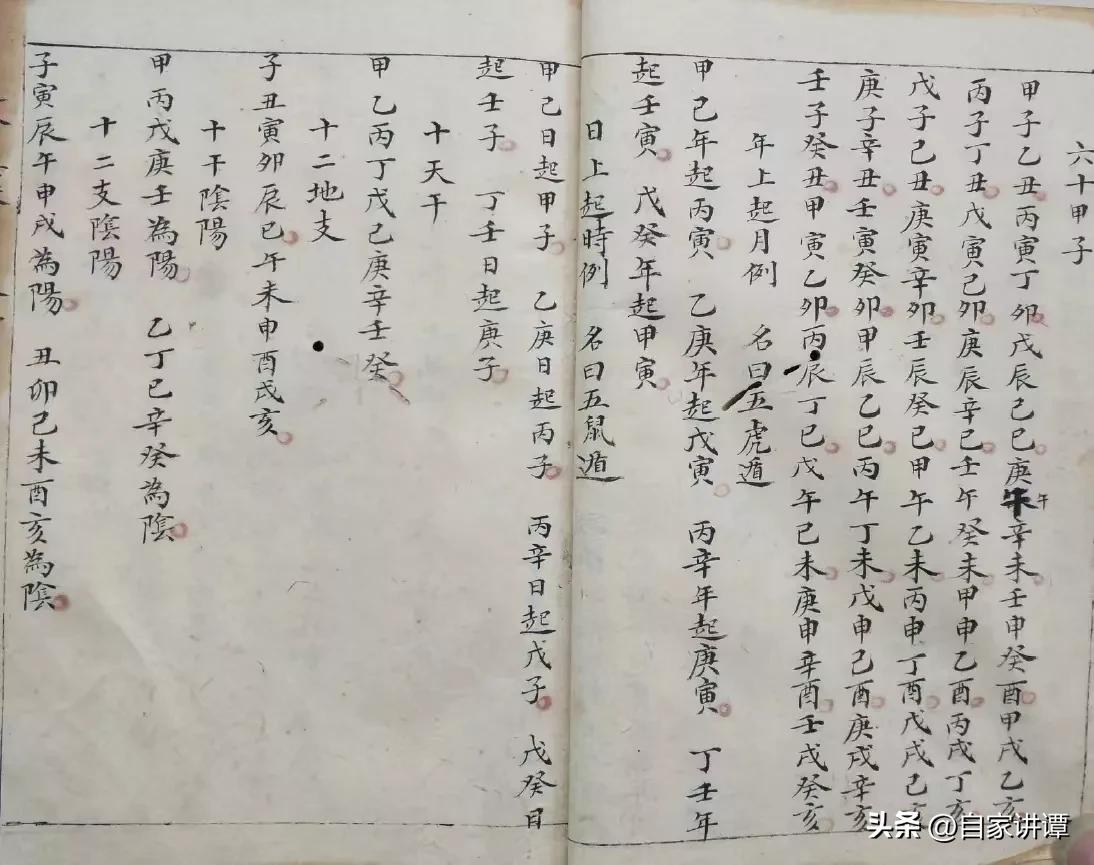 六十甲子
甲子乙丑丙寅丁卯戊辰己巳庚午辛未壬申癸酉甲戌乙亥
丙子丁丑戊寅己卯庚辰辛巳壬午癸未甲申乙酉丙戌丁亥
戊子己丑庚寅辛卯壬辰癸巳甲午乙未丙申丁酉戊戌己亥
庚子辛丑壬寅癸卯甲辰乙巳丙午丁未戊申己酉庚戌辛亥
壬子癸丑甲寅乙卯丙辰丁巳戊午己未庚申辛酉壬戌癸亥
年上起月例 名曰五虎遁
甲己年起丙寅 乙庚年起戊寅 丙辛年起庚寅 丁壬年
起壬寅 戊癸年起甲寅
日上起時例 名曰五鼠遁
甲己日起甲子 乙庚日起丙子 丙辛日起戊子 戊癸日
起壬子 丁壬日起庚子
十天干
甲乙丙丁戊己庚辛壬癸
十二地支
子丑寅卯辰巳午未申酉戌亥
十干陰陽
甲丙戊庚壬為陽 乙丁己辛癸為陰
十二支陰陽
子寅辰午申戌為陽 丑卯巳未酉亥為陰
头条 @自家讲谭